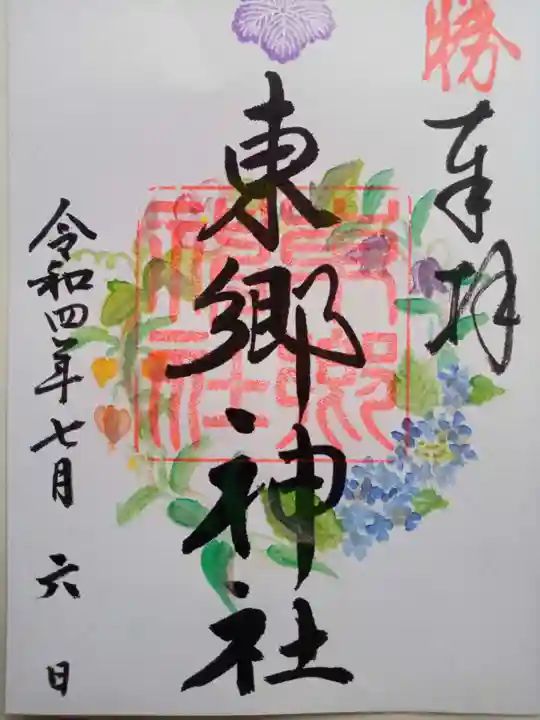 勝
奉拝
東郷神社
東郷神社
令和四年七月六日